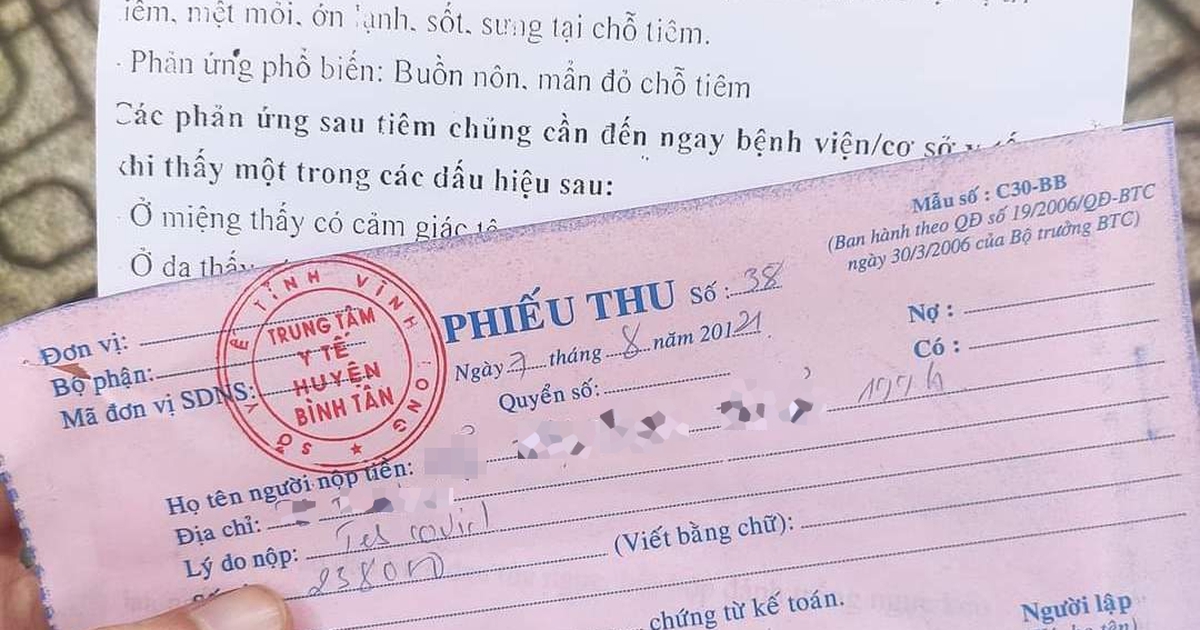 mệt mỏi, ớn lạnh, sốt, sưng tại chỗ tiêm.
- Phản ứng phổ biến: Buồn nôn, mẩn đỏ chỗ tiêm
Các phản ứng sau tiêm chủng cần đến ngay bệnh viện/cơ sở
khi thấy một trong các dấu hiệu sau:
Ở miệng thấy có cảm giác tê
Ở da thấy
Mẫu số : C30-BB
(Ban hành theo QĐ số 19/2006/QĐ-BTC
ngày 30/3/2006 của Bộ trưởng BTC)
Đơn vị:
Bộ phận:
Mã đơn vị SDNS:
SỞ Y TẾ TỈNH VĨNH LONG
TRUNG TÂM
Y TẾ
HUYỆN
BÌNH TÂN
PHIẾU THU Số : 38
Ngày 7 tháng 8 năm 20121
Quyển số:
Nợ :
Có :
Họ tên người nộp tiền:
Địa chỉ:
Lý do nộp: Tes covid
238000
(Viết bằng chữ):
chứng từ kế toán.
Người lập